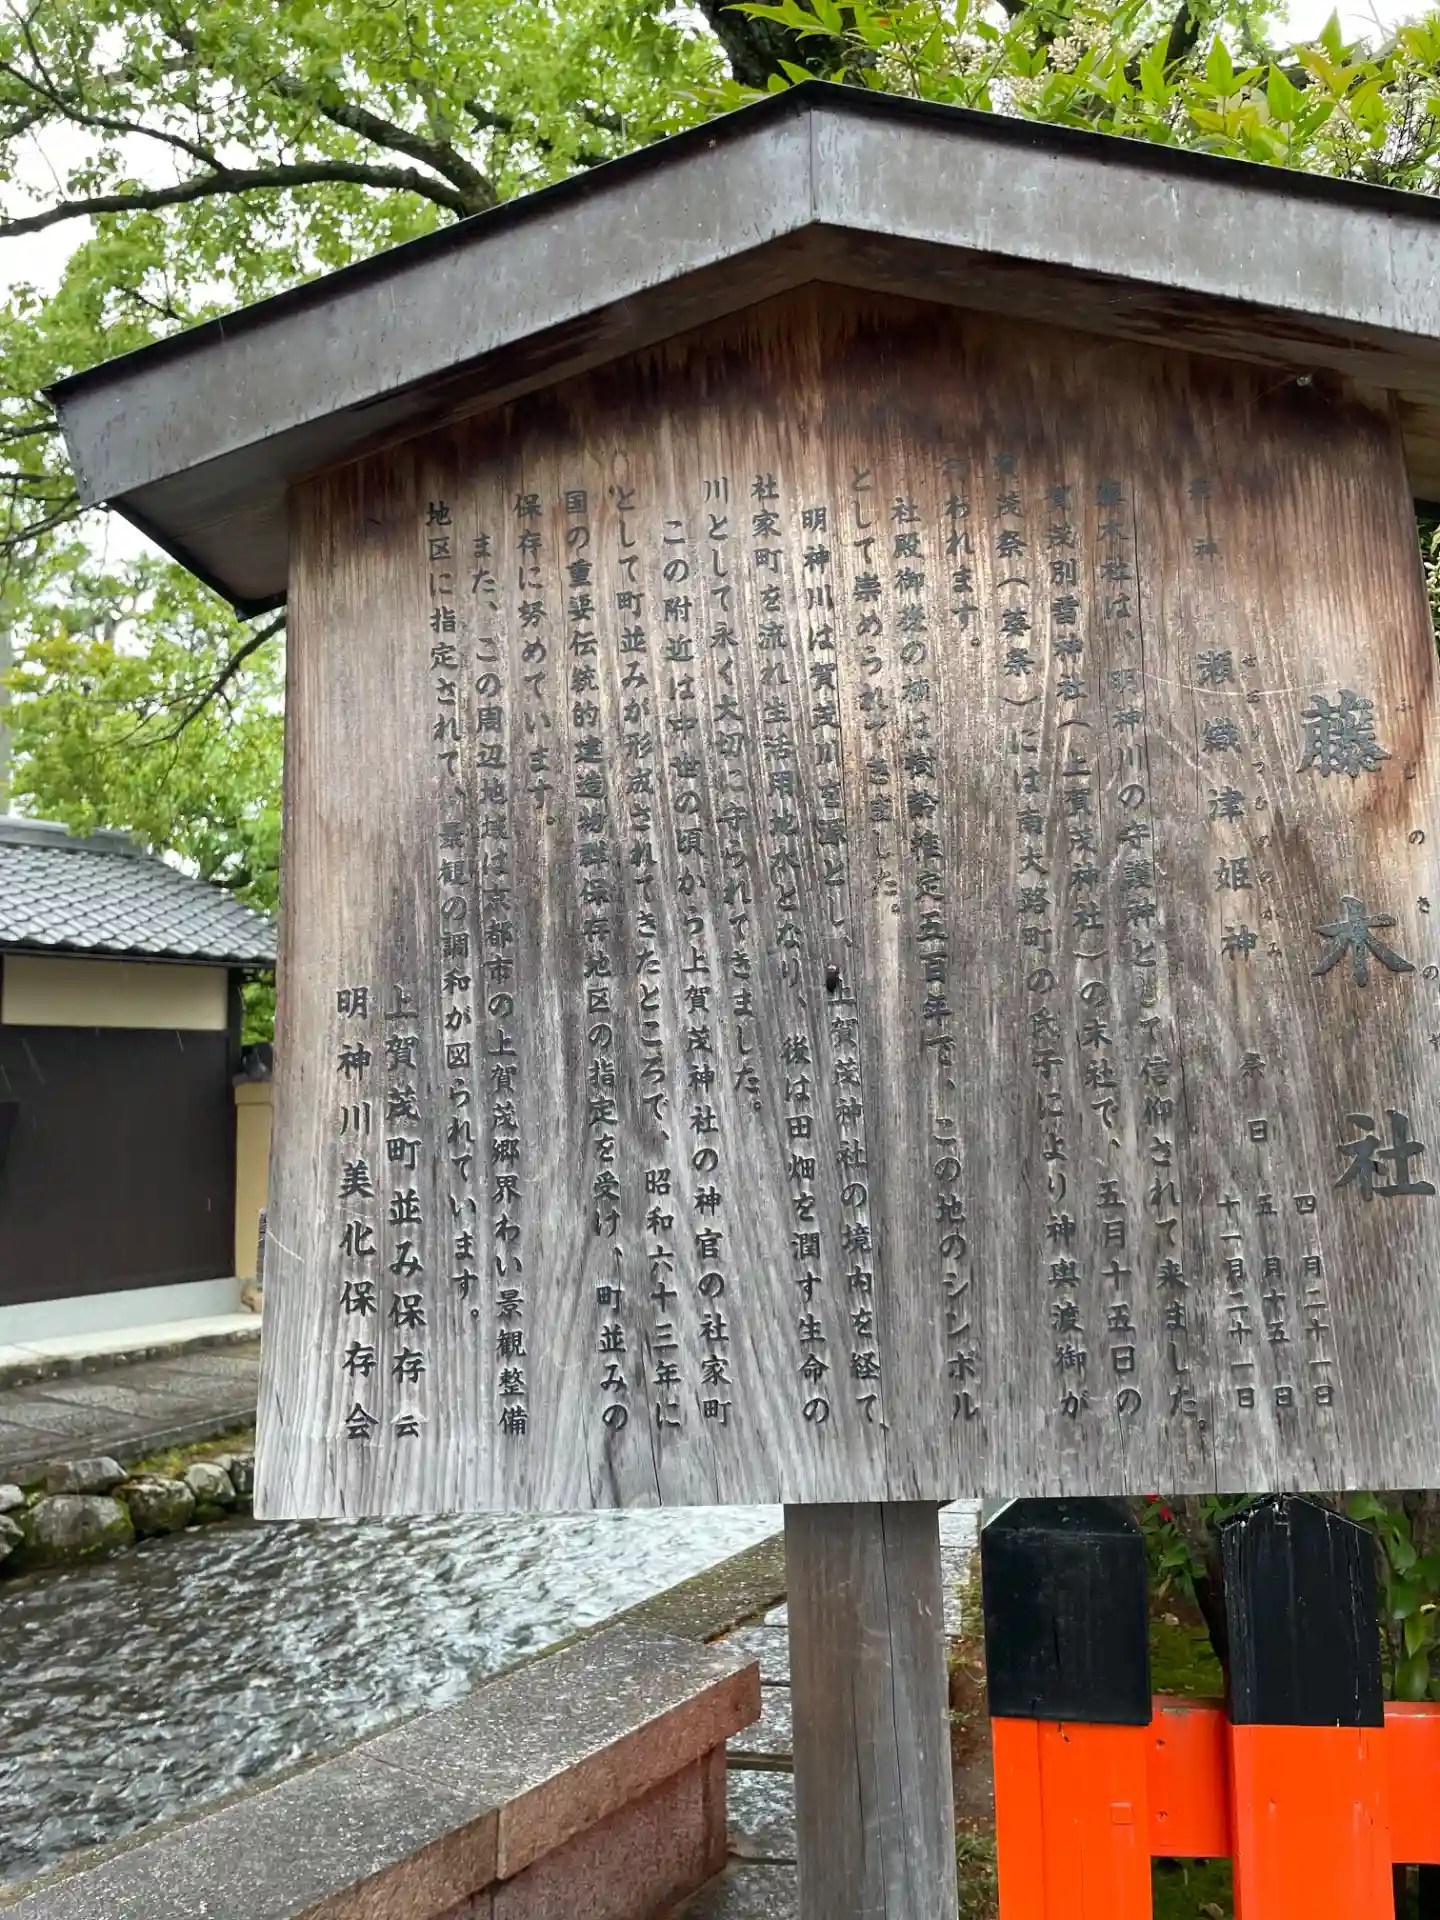 藤木社
ふじのきのやしろ
祭神
瀬織津姫神
せおりつひめのかみ
祭日
四月二十一日
五月十五日
十一月二十一日
藤木社は、明神川の守護神として信仰されて来ました。
賀茂別雷神社(上賀茂神社)の末社で、五月十五日の
賀茂祭(葵祭)には南大路町の氏子により神輿渡御が
行われます。
社殿御後の楠は樹幹推定五百年で、この地のシンボル
として崇めうれてきました。
明神川は賀茂川を源とし、上賀茂神社の境内を経て、
社家町を流れ生活用地水となり、後は田畑を潤す生命の
川として永く大切に守られてきました。
この附近は中世の頃から上賀茂神社の神官の社家町
として町並みが形成されてきたところで、昭和六十三年に
国の重要伝統的建造物群保存地区の指定を受け、町並みの
保存に努めています。
また、この周辺地域は京都市の上賀茂郷界わい景観整備
地区に指定されて、景観の調和が図られています。
上賀茂町並み保存会
明神川美化保存会